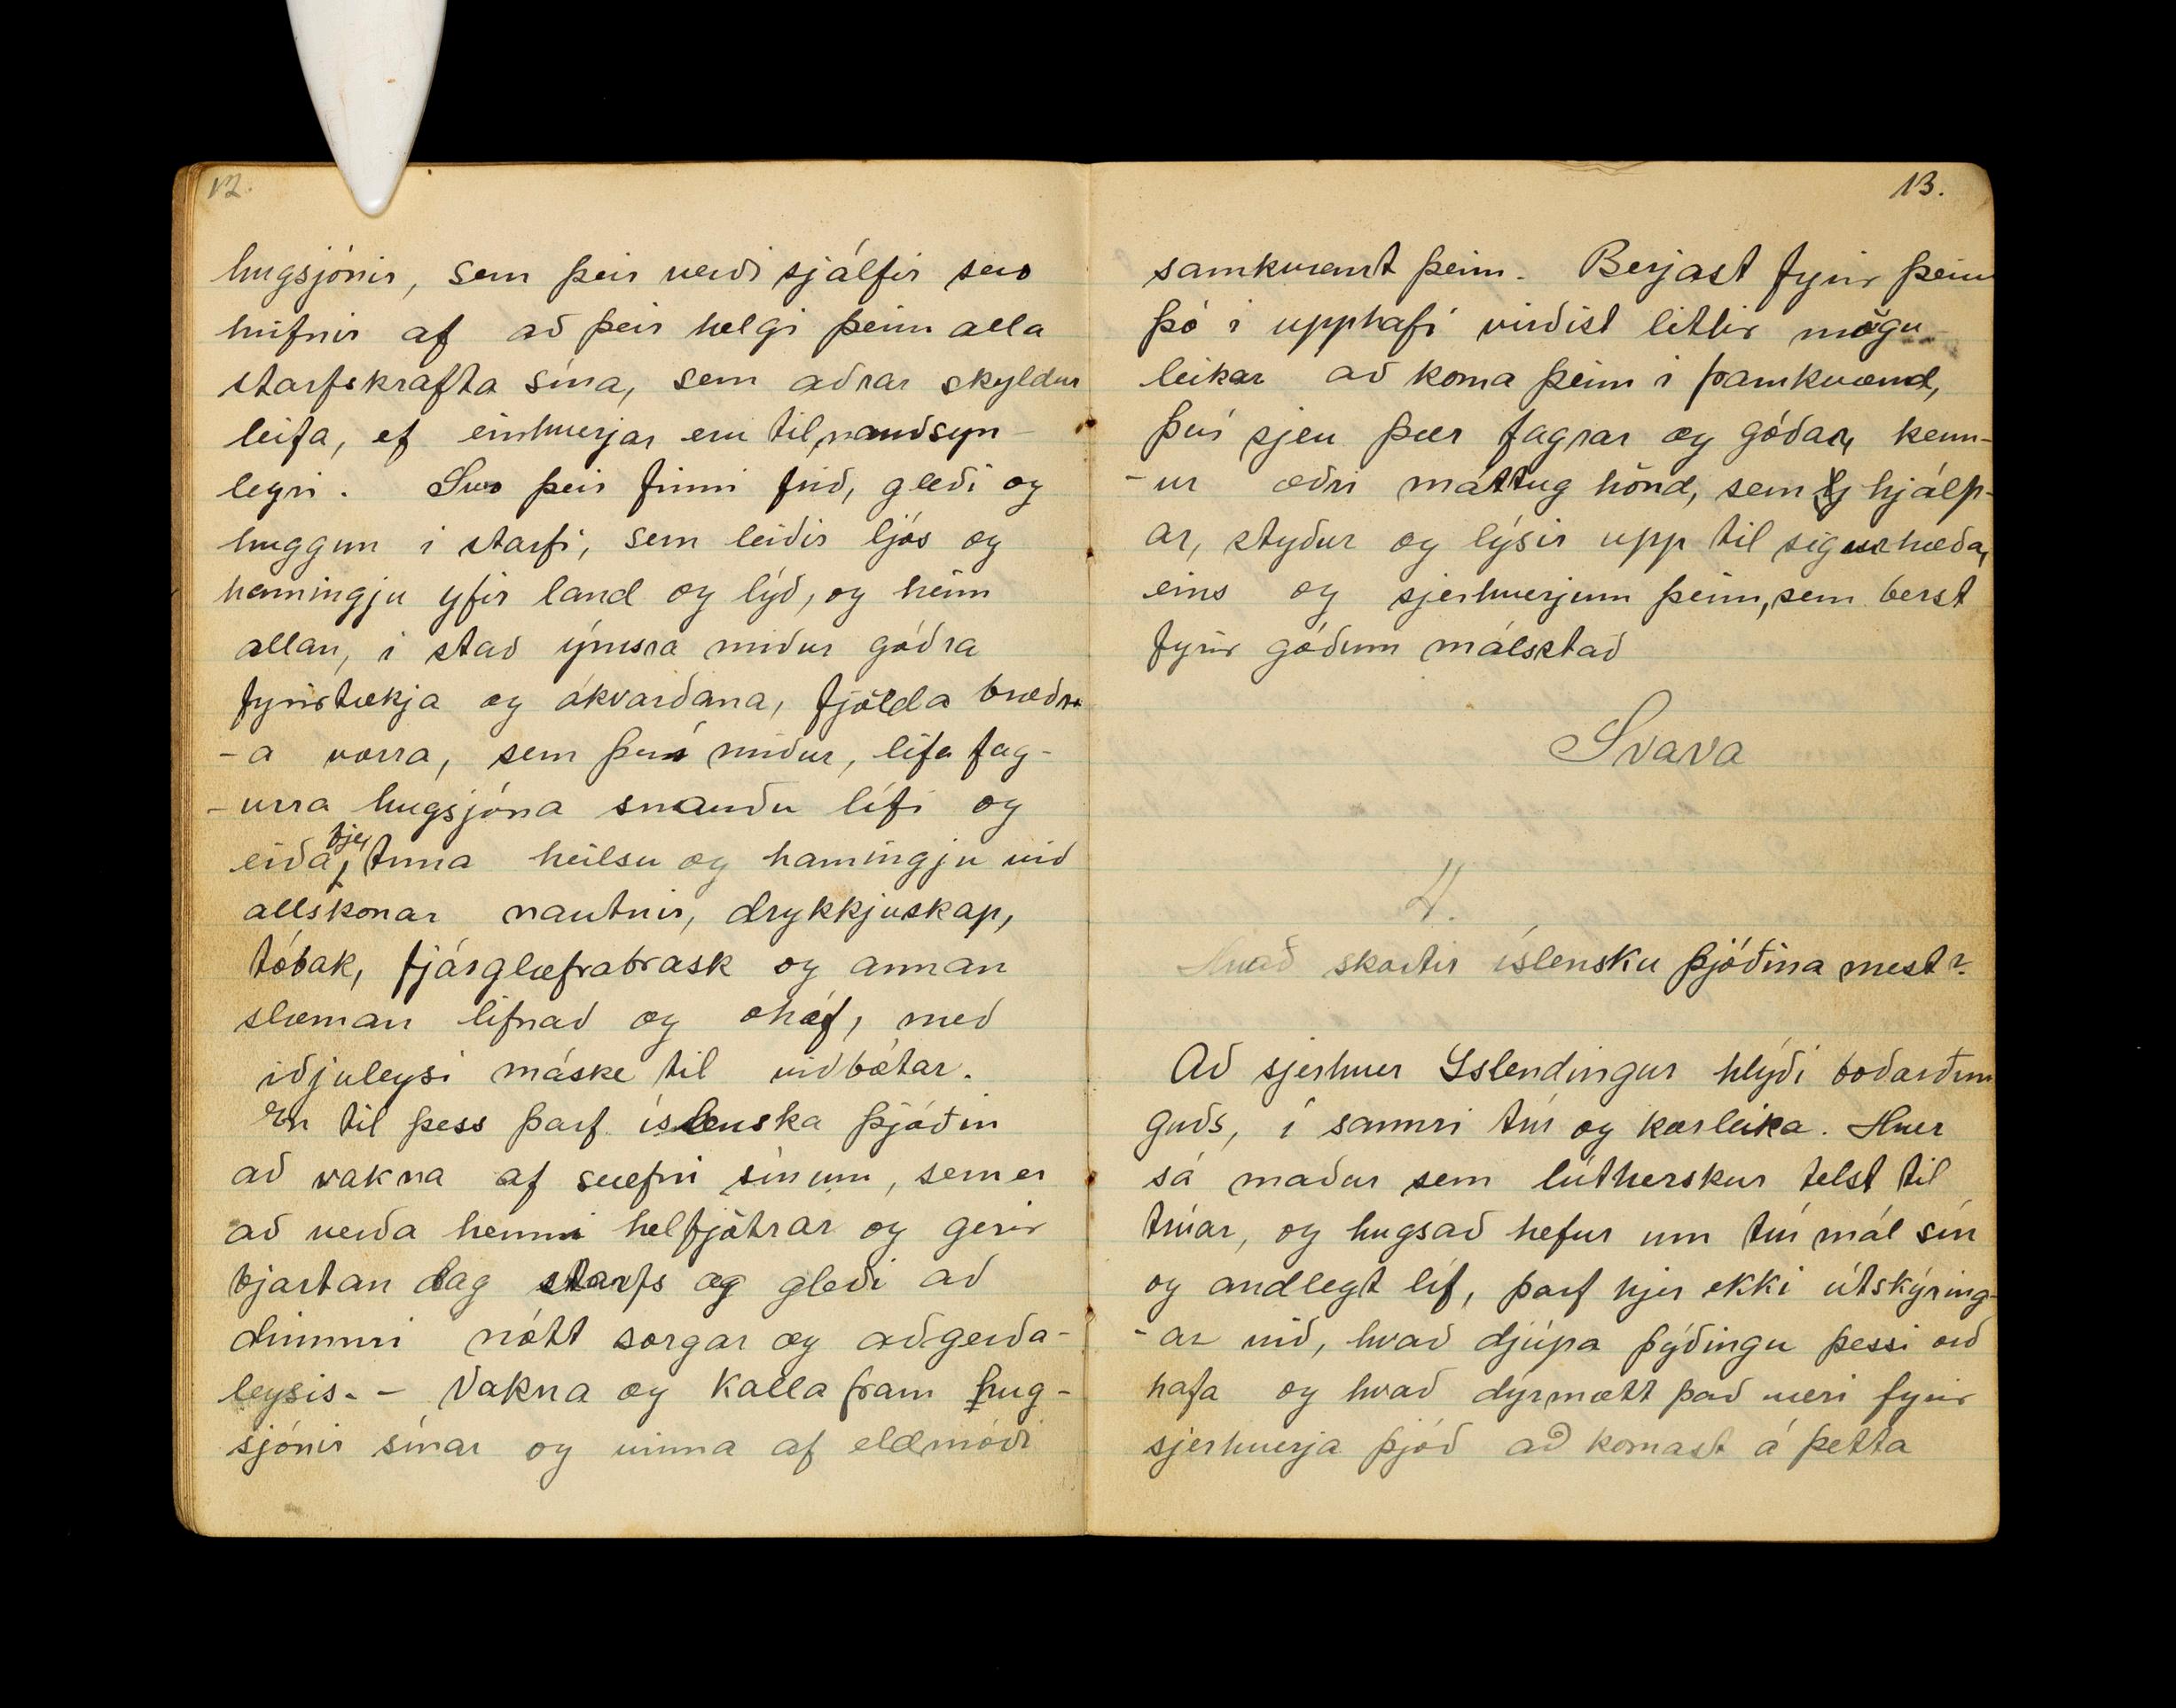 12.
hugsjónir, sem þeir verði sjálfir svo
hrifnir af að þeir helgi þeim alla
starfskrafta sína, sem aðrar skyldur
leifa, ef einhverjar eru til, nauðsyn-
legri. Svo þeir finni frið, gleði og
huggun í starfi, sem leiðir ljós og
hamingju yfir land og lýð, og heim
allan, í stað ýmsra miður góðra
fyrirtækja og ákvarðana, fjölda bræðr-
-a vorra, sem því miður, lifa fag-
-urra hugsjóna snauðu lífi og
eiða, fje, trúna heilsu og hamingju við
allskonar nautnir, drykkjuskap,
tóbak, fjárglæfrabrask og annan
slæman lifnað og óhóf, með
iðjuleysi máske til viðbótar.
En til þess þarf íslenska þjóðin
að vakna af svefni sínum, sem er
að verða henni helfjötrar og gerir
bjartan dag starfs og gleði að
dimmri nótt sorgar og aðgerða-
leysis. - Vakna og kalla fram hug-
sjónir sínar og vinna af eldmóði
13.
samkvæmt þeim. Berjast fyrir þeim
þó í upphafi virðist littlir mögu-
leikar að koma þeim í framkvæmd,
því sjeu þær fagrar og góðar, kem-
-ur æðri máttug hönd, sem hjálp-
ar, styður og lýsir upp til sigurhæða,
eins og sjerhverjum þeim, sem berst
fyrir góðum málsstað
Svava
4.
Hvað skortir íslensku þjóðina mest?
Að sjerhver Íslendingur hlýði boðorðum
guðs, í sannri trú og kærleika. Hver
sá maður sem lútherskur telst til
trúar, og hugsað hefur um trú mál sín
og andlegt líf, þarf hjer ekki útskýring-
-ar við, hvað djúpa þýðingu þessi orð
hafa og hvað dýrmætt það væri fyrir
sjerhverja þjóð að komast á þetta